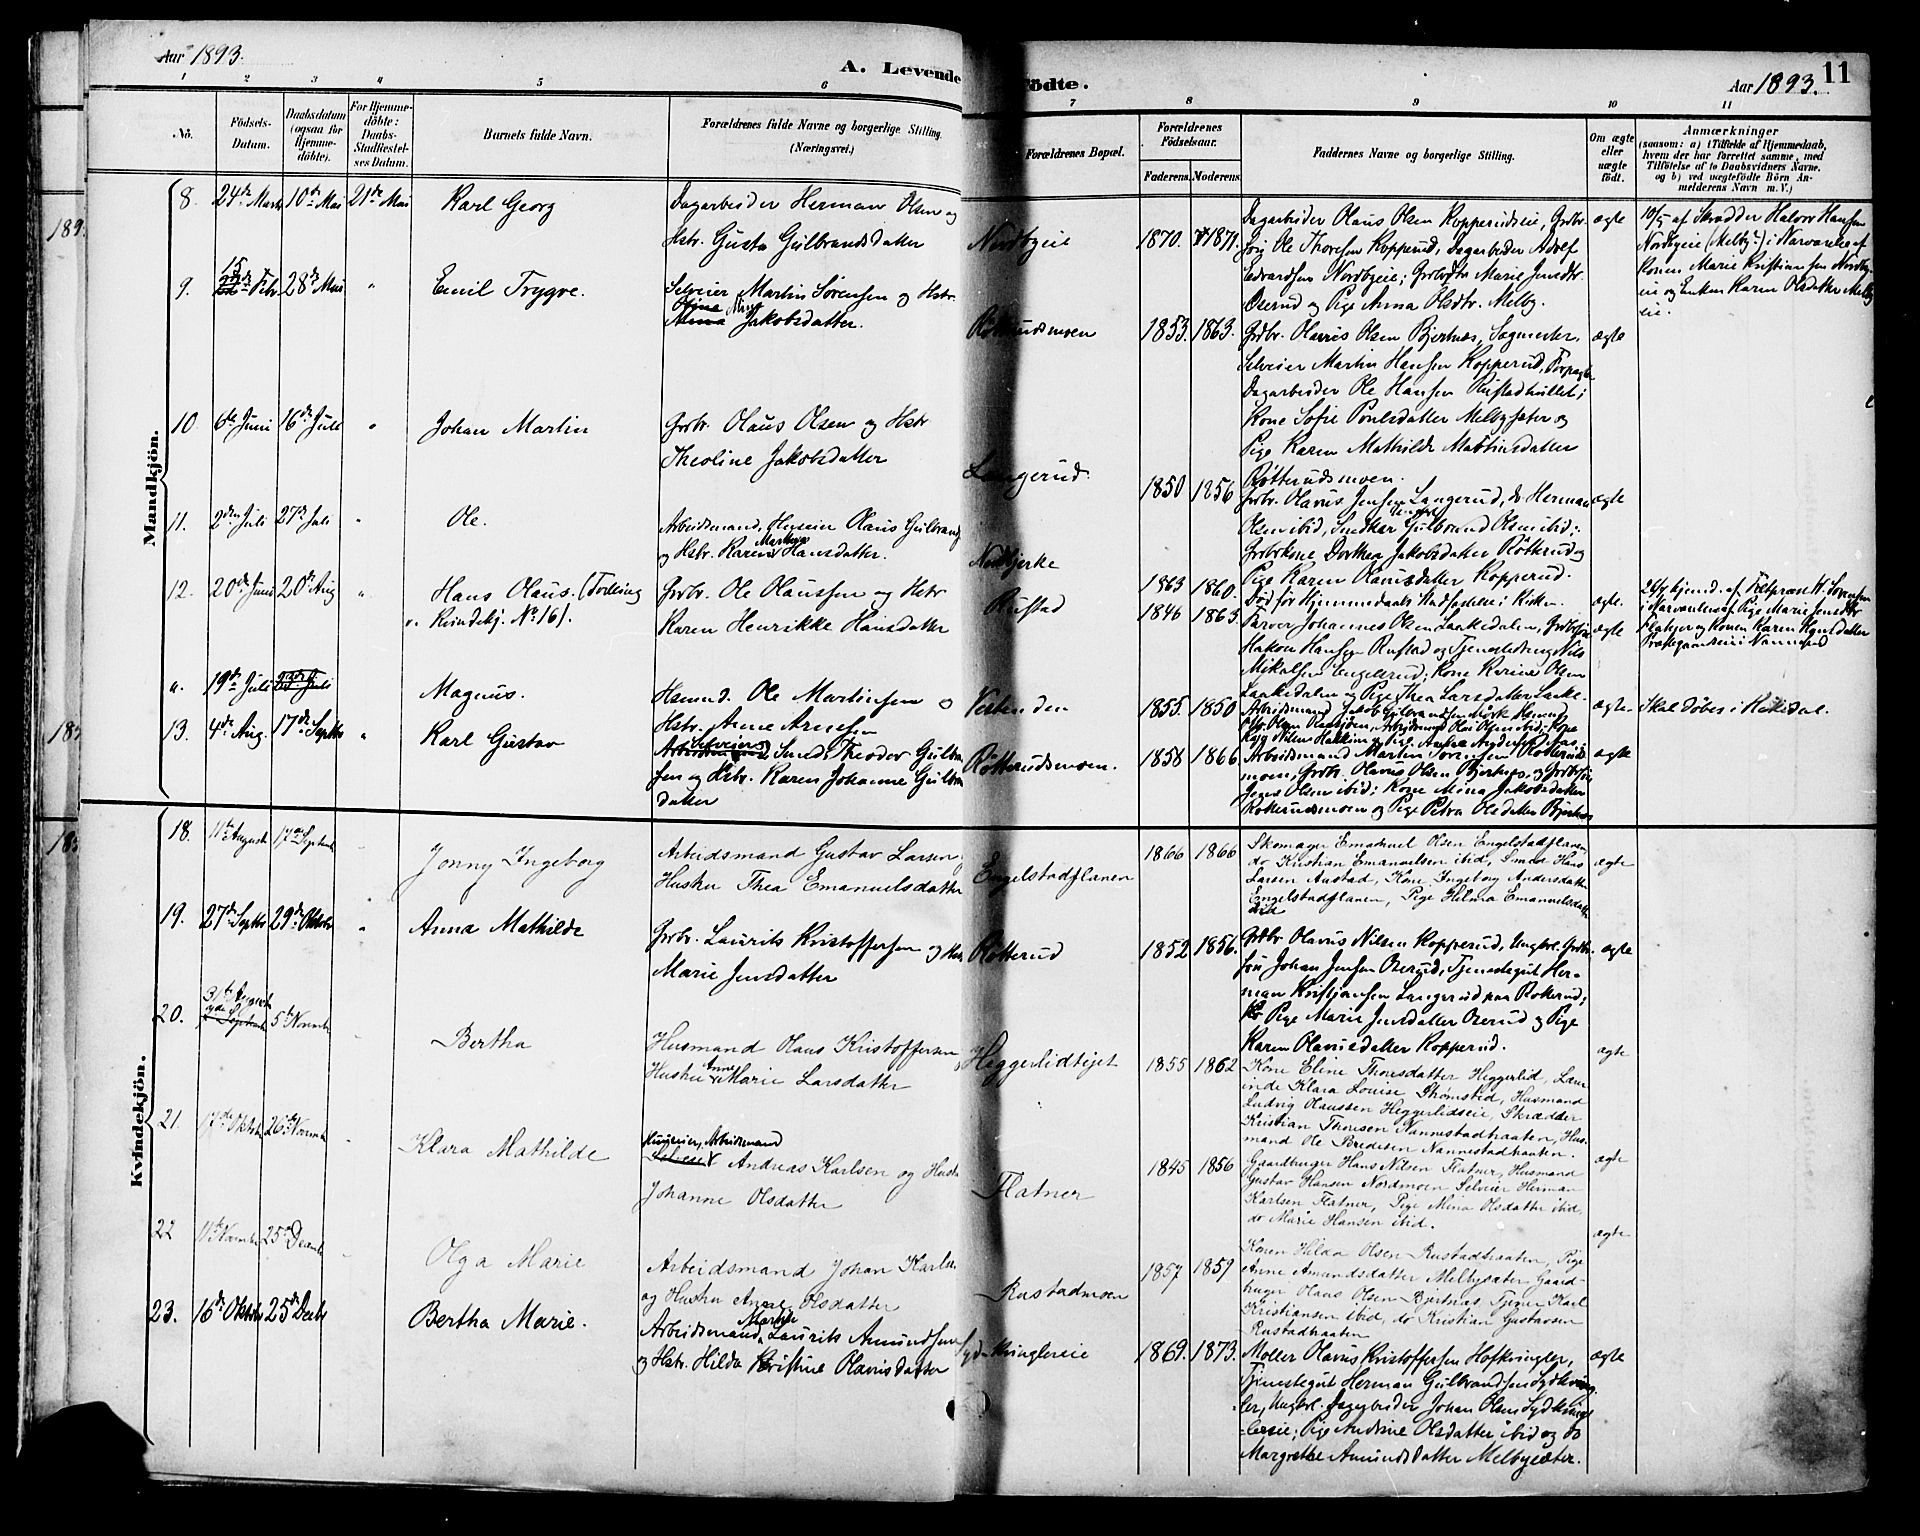 Aar 1893.
A. Levende Födte.
Aar 1893.
11
1 2 3 4 5 6 7 8 9 10 11
No.
Födsels-Datum.
Daabsdatum (ogsaa for Hjemmedöbte).
For Hjemmedöbte: Daabs-Stadfæstelses Datum.
Barnets fulde Navn.
Forældrenes fulde Navne og borgerlige Stilling. (Næringsvei.)
Forældrenes Bopæl.
Forældrenes Födselsaar.
Faderens. Moderens.
Faddernes Navne og borgerlige Stilling.
Om ægte eller uægte födt.
Anmærkninger
(saasom: a) i Tilfælde af Hjemmedaab, hvem der har forrettet samme, med Tilföielse af to Daabsvidners Navne, og b) ved uægtefödte Börn Anmelderens Navn m. V.)
Mandkjön.
8. 24de Marts 10de Mai 21de Mai Karl Georg
Dagarbeider Herman Olsen og
Hstr. Gusta Gulbrandsdatter
Nordbyeie 1870. 1871.
Dagarbeider Olaus Olsen Kopperudseie, Grdbr.
søn Ole Thoresen Kopperud, Dagarbeider Adolf
Edvardsen Nordbyeie; Grdbrdtr Marie Jensdtr.
Oserud og Pige Anna Olsdtr. Melby.
ægte
10/5 af Skrædder Halvor Hansen
Nordbyeie (Melby?) i Nærværelse af
Konen Marie Kristiansen Nordby-
eie og Enken Karen Olsdatter Melby
eie.
9. 15 Febr. 28de Mai " Emil Trygve.
Selveier Martin Sørensen og Hstr.
Mina Jakobsdatter.
Røtterudsmoen 1853. 1863.
Grdbr. Olavus Olsen Bjertnæs, Sagmester,
Selveier Martin Hansen Kopperud, Forpagter
Dagarbeider Ole Hansen Rustadhullet;
Kone Sofie Poulsdatter Melbysæter og
Pige Karen Mathilde Martinsdatter
Røtterudsmoen.
ægte
10. 6te Juni 16de Juli " Johan Martin
Grdbr. Olaus Olsen og Hstr
Theoline Jakobsdatter
Langerud 1850 1856
Grdbr. Olavus Jensen Langerud, do Herman
Olsen ibid, Snedker Gulbrand Olsen ibid;
Grdbrkone Dorthea Jakobsdatter Røtterud og
Pige Karen Olavusdatter Kopperud.
ægte
11. 2den Juli 27de Juli " Ole.
Arbeidsmand, Huseier Olaus Gulbrands
og Hstr. Karen Marthea Hansdatter.
Nordbjerke 1863 1860.
Død før Hjemmedaabs Stadfæstelse i Kirken.
ægte.
12. 20de Juni 20de Aug " Hans Olaus. (Tvilling
v. Kvindekj. No 16).
Grdbr. Ole Olaussen og Hstr
Karen Henrikke Hansdatter
Rustad 1846 1863
Farver Johannes Olsen Laakedalen, Grdbrsøn
Hakon Hansen Rustad og Tjenestedreng Nils
Mikalsen Engelerud; Kone Karine Olsen
Laakedalen og Pige Thea Larsdatter Laake-
ægte
a. 19de Juli Magnus.
Hmmd. Ole Martinsen og
Hstr. Anne Arnesen
Vestenden 1855. 1850
ægte.
Skal døbes i Hakedal.
13. 4de Aug. 17de Septbr " Karl Gustav
Selveier Smed Theodor Gulbrand-
sen og Hstr. Karen Johanne Gulbrands
datter
Røtterudsmoen. 1858 1866
Arbeidsmand Martin Sørensen Røtteruds-
moen, Grdbr. Olavus Olsen Bjertnæs, og Grdbrsøn
Jens Olsen ibid; Kone Mina Jakobsdatter
Røtterudsmoen og Pige Petra Olsdatter Bjertnæs
ægte
Kvindekjön.
18. 11te August 17de Septemb Jonny Ingeborg
Arbeidsmand Gustav Larsen
Hustru Thea Emanuelsdatter
Engelstadflanen 1866 1866
Skomager Emanuel Olsen Engelstadflanen,
do Kristian Emanuelsen ibid, Smed Hans
Larsen Austad, Kone Ingeborg Andersdatter
Engelstadflanen, Pige Helma Emanuelsdatter
ibid
ægte
19. 27de Septbr 29de Oktober " Anna Mathilde
Grdbr. Laurits Kristoffersen og Hstr
Marie Jensdatter
Røtterud 1852 1856.
Grdbr Olavus Nilsen Kopperud, Ungkrl. Grdbr.
søn Johan Jensen Oserud, Tjenestegut Her-
man Kristiansen Langerud paa Røtterud;
Pige Marie Jensdatter Oserud og Pige
Karen Olavusdatter Kopperud.
ægte
20. 31te August 5te Novembr Bertha
Husmand Olaus Kristoffersen
Hustru Anne Marie Larsdatter
Heggerlidteiet 1855 1862
Kone Eline Thoresdatter Heggerlid, Lær-
inde Klara Louise Strømstid, Husmand
Ludvig Olaussen Heggerlidseie, Skrædder
Kristian Thoresen Nannestadhaaten, Hus-
mand Ole Bredesen Nannestadhaaten.
ægte
21. 17de Oktober 26de Novemb Klara Mathilde
Huseier, Arbeidsmand
Andreas Karlsen og Hustru
Johanne Olsdatter
Flatner 1845 1856
Gaardbruger Hans Nilsen Flatner, Husmand
Gustav Hansen Nordmoen Selveier Herman
Karlsen Flatner, Pige Mina Olsdatter ibid,
do Marie Hansen ibid.
ægte
22 11te Novembr 25de Decemb Olga Marie
Arbeidsmand Johan Karlsen
og Hustru Anne Olsdatter
Rustadmoen 1857 1859
Konen Hilda Olsen Rustadhaaten, Pige
Anne Amundsdatter Melbysæter, Gaard-
bruger Olaus Olsen Bjertnæs, Tjener Karl
Kristiansen ibid, do Kristian Gustavsen
Rustadhaaten
ægte
23. 16de Oktober 25de Decbr Bertha Marie.
Arbeidsmand Laurits Amundsen
og Hstr. Hilda Kristine Olavusdatter
Sydkringlereie 1869. 1873.
Møller Olavus Kristoffersen Hofkringler,
Tjenestegut Herman Gulbrandsen Sydkring-
ler, Ungkrl. Dagarbeider Johan Olsen Sydkring-
lereie; Pige Andrine Olsdatter ibid og do
Margrethe Amundsdatter Melbysæter.
ægte